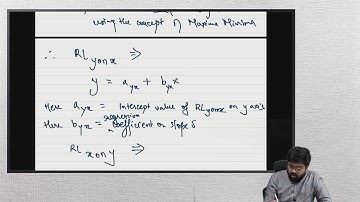 using the concept of Maxima Minima
∴ RL y on x ⇒
y = a yx + b yx x
Here a yx = Intercept value of RL yonx on y axis
regression
Here b yx = coefficient or slope
RL x on y ⇒